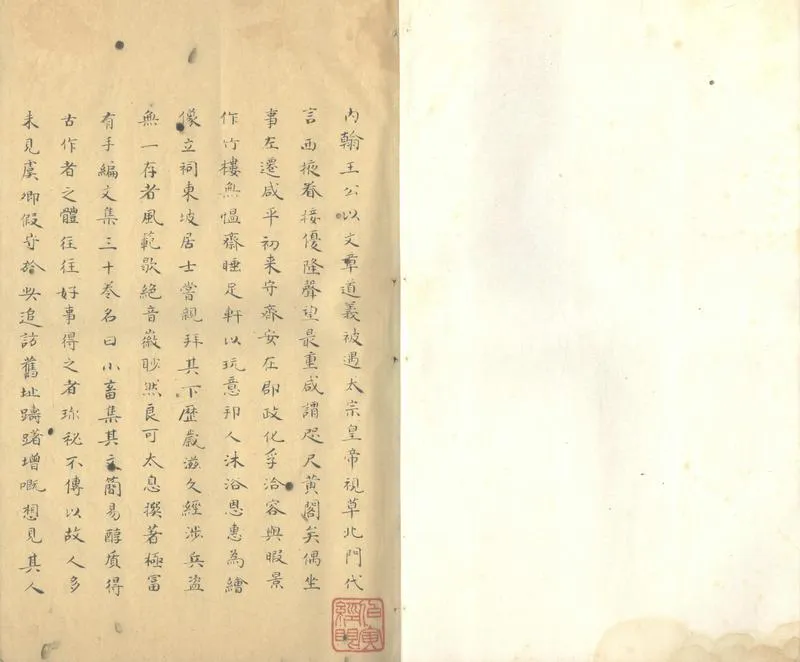 內翰王公以文章道義被遇太宗皇帝視草北門代
言西掖眷接優隆聲望最重咸謂咫尺黃閣矣偶坐
事左遷咸平初来守齊安在郡政化孚洽容與暇景
作竹樓無愠齋睡足軒以玩意邦人沐浴恩惠為繪
像立祠東坡居士嘗親拜其下歷歲滋久經涉兵盜
無一存者風範歇絶音徽眇然良可太息撰著極富
有手編文集三十卷名曰小畜集其文簡易醇质得
古作者之體往往好事得之者珎祕不傳以故人多
未見虞卿假守於兹追訪舊址躊躇增嘅想見其人
伯寅經眼